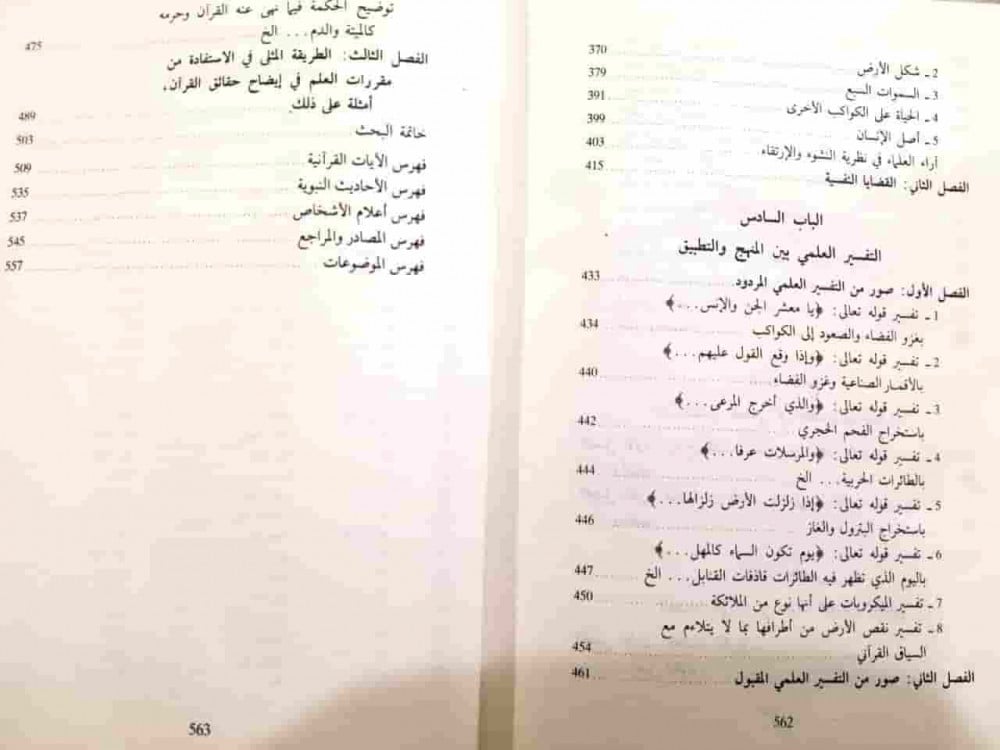 2 ـ شكل الأرض ........ 370
3 ـ السموات السبع ........ 379
4 ـ الحياة على الكواكب الأخرى ........ 391
5 ـ أصل الإنسان ........ 399
آراء العلماء في نظرية النشوء والإرتقاء ........ 403
الفصل الثاني: القضايا النفسية ........ 415
الباب السادس
التفسير العلمي بين المنهج والتطبيق
الفصل الأول: صور من التفسير العلمي المردود ........ 433
1 ـ تفسير قوله تعالى: ﴿يا معشر الجن والإنس...﴾
بغزو الفضاء والصعود إلى الكواكب ........ 434
2 ـ تفسير قوله تعالى: ﴿وإذا وقع القول عليهم...﴾
بالأقمار الصناعية وغزو الفضاء ........ 440
3 ـ تفسير قوله تعالى: ﴿والذي أخرج المرعى...﴾
باستخراج الفحم الحجري ........ 442
4 ـ تفسير قوله تعالى: ﴿والمرسلات عرفا...﴾
بالطائرات الحربية... الخ ........ 444
5 ـ تفسير قوله تعالى: ﴿إذا زلزلت الأرض زلزالها...﴾
باستخراج البترول والغاز ........ 446
6 ـ تفسير قوله تعالى: ﴿يوم تكون السماء كالمهل...﴾
باليوم الذي تظهر فيه الطائرات قاذفات القنابل... الخ ........ 447
7 ـ تفسير الميكروبات على أنها نوع من الملائكة ........ 450
8 ـ تفسير نقص الأرض من أطرافها بما لا يتلاءم مع
السياق القرآني ........ 454
الفصل الثاني: صور من التفسير العلمي المقبول ........ 461
562
توضيح الحكمة فيما نهى عنه القرآن وحرمه
كالميتة والدم... الخ ........ 475
الفصل الثالث: الطريقة المثلى في الاستفادة من
مقررات العلم في إيضاح حقائق القرآن،
أمثلة على ذلك ........ 489
خاتمة البحث ........ 503
فهرس الآيات القرآنية ........ 509
فهرس الأحاديث النبوية ........ 535
فهرس أعلام الأشخاص ........ 537
فهرس المصادر والمراجع ........ 545
فهرس الموضوعات ........ 557
563